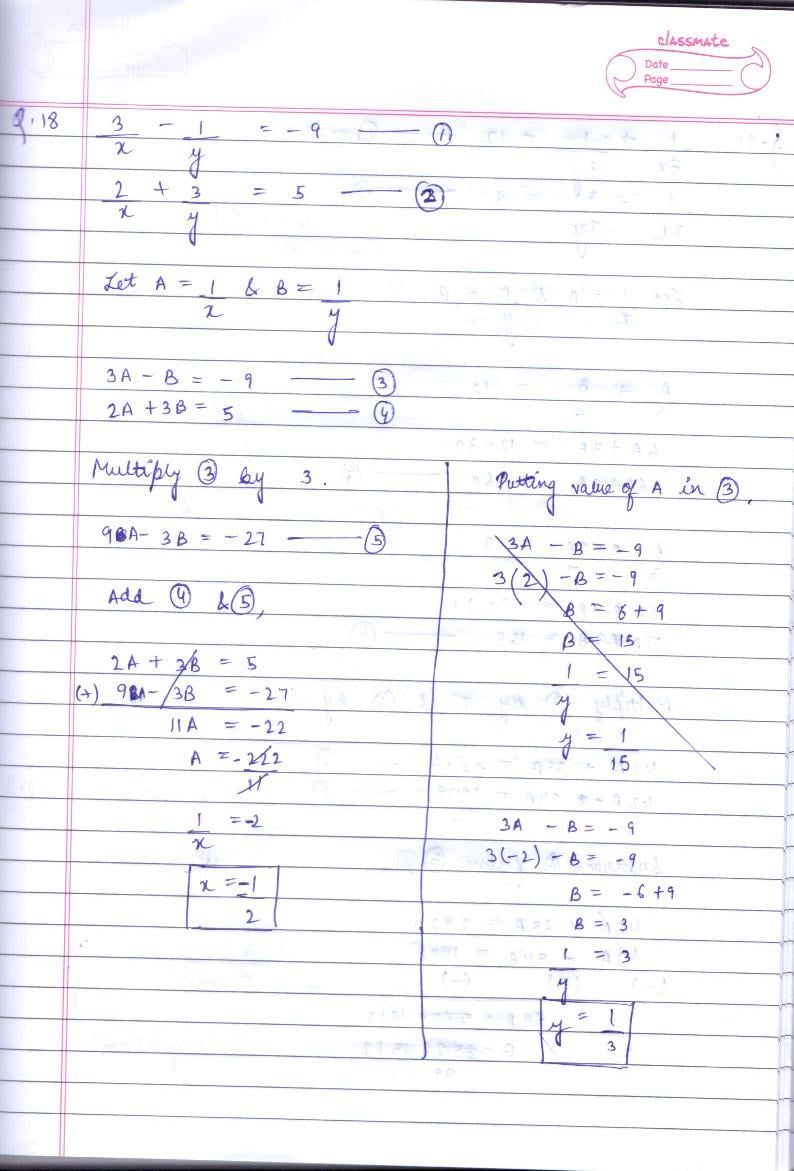 classmate
Date
Page
Q.18 3/x - 1/y = -9 —— ①
2/x + 3/y = 5 —— ②
Let A = 1/x & B = 1/y
3A - B = -9 —— ③
2A + 3B = 5 —— ④
Multiply ③ by 3.
9A - 3B = -27 —— ⑤
Add ④ & ⑤,
2A + 3B = 5
(+) 9A - 3B = -27
11A = -22
A = -22/11
1/x = -2
x = -1/2
Putting value of A in ③,
3A - B = -9
3(2) - B = -9
B = 6 + 9
B = 15
1/y = 15
y = 1/15
3A - B = -9
3(-2) - B = -9
B = -6 + 9
B = 3
1/y = 3
y = 1/3